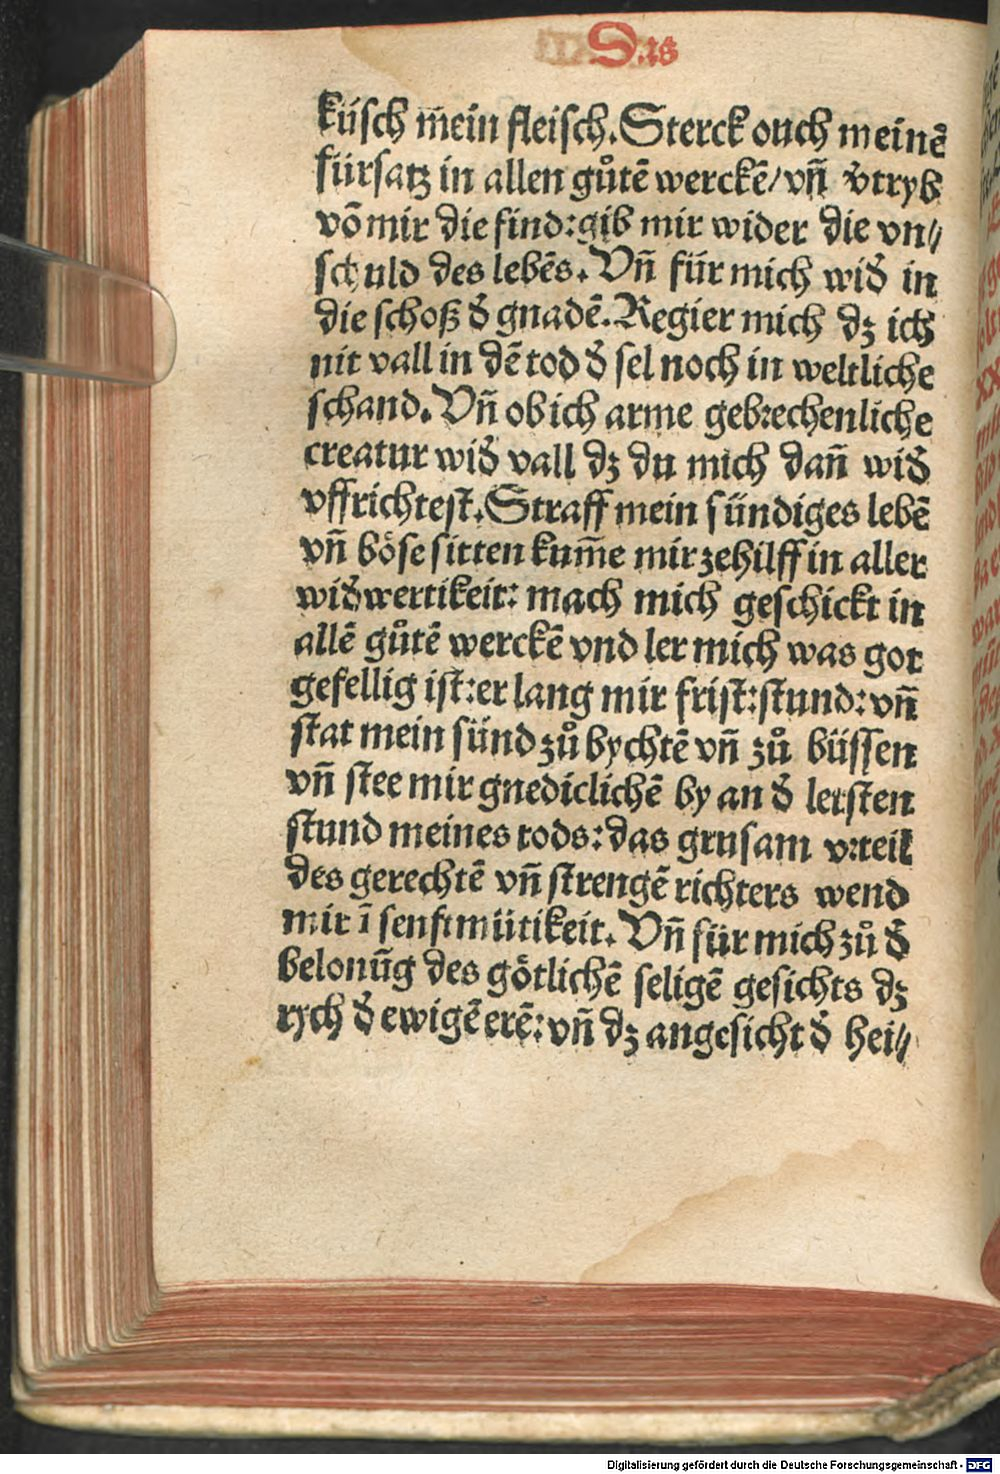 Das
küsch mein fleisch. Sterck ouch meinē
fürsatz in allen gůtē werckē/ vn̄ v̄tryb
vō mir die find: gib mir wider die vn⸗
schuld des lebēs. Vn̄ für mich wid̄ in
die schoß d̄ gnadē. Regier mich dz ich
nit vall in dē tod d̄ sel noch in weltliche
schand. Vn̄ ob ich arme gebrechenliche
creatur wid̄ vall dz du mich dan̄ wid̄
vffrichtest. Straff mein sündiges lebē
vn̄ böse sitten kum̄e mir zehilff in aller
wid̄wertikeit: mach mich geschickt in
allē gůtē werckē vnd ler mich was got
gefellig ist: er lang mir frist: stund: vn̄
stat mein sünd zů bychtē vn̄ zů büssen
vn̄ stee mir gnediclichē by an d̄ letsten
stund meines tods: das grusam vrteil
des gerechtē vn̄ strengē richters wend
mir ī senftmütikeit. Vn̄ für mich zů d̄
belonūg des götlichē seligē gesichts dz
rych d̄ ewigē erē: vn̄ dz angesicht d̄ hei⸗
Digitalisierung gefördert durch die Deutsche Forschungsgemeinschaft - DFG